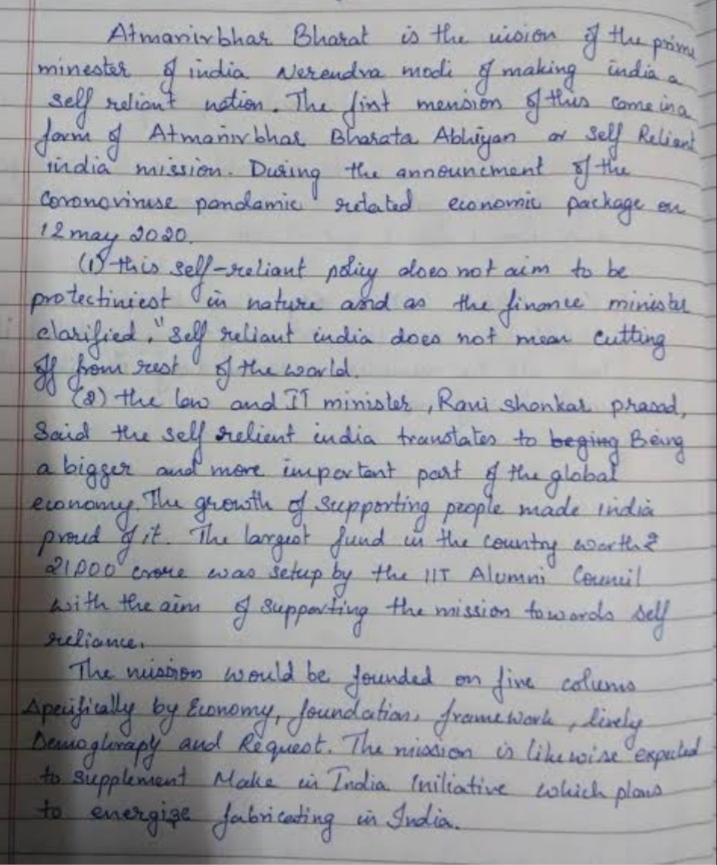 Atmanirbhar Bharat is the vision of the prime
minester of india Nerendra modi of making india a
self reliant nation. The first mension of this come in a
form of Atmanirbhar Bharata Abhiyan or self Reliant
india mission. During the announcment of the
coronoviruse pandamic related economic package on
12 may 2020.
(1) this self-reliant policy does not aim to be
protectiniest in nature and as the finance minister
clarified, "self reliant india does not mean cutting
off from rest of the world.
(2) the low and IT minister, Ravi shonkar prasad,
said the self relient india translates to beging Being
a bigger and more important part of the global
economy. The growth of supporting people made india
proud of it. The largest fund in the country worth ₹
21,000 crore was setup by the IIT Alumni Council
with the aim of supporting the mission towards self
reliance.
The mission would be founded on five colums
Specifically by Economy, foundation, framework, lively
Demoghrapy and Request. The mission is likewise expected
to supplement Make in India Initiative which plans
to energize fabricating in India.